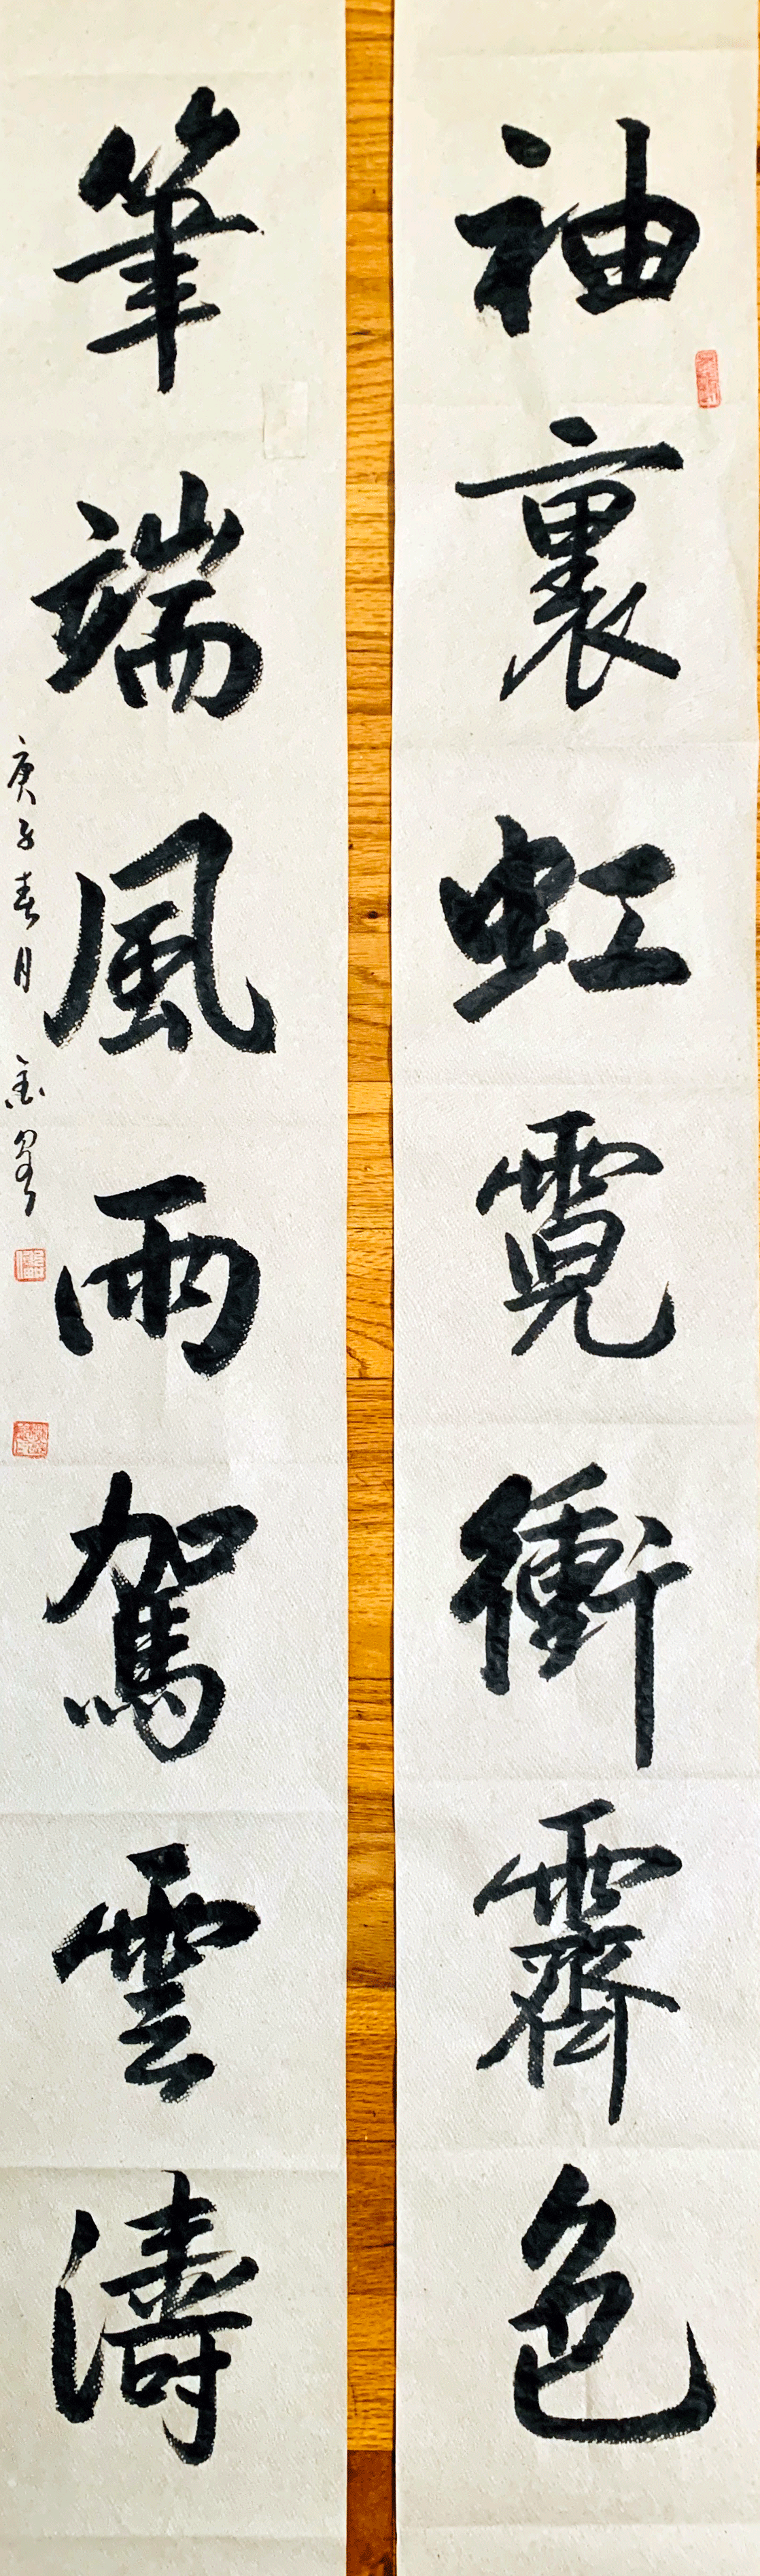 袖裏虹霓衝霽色
筆端風雨駕雲濤
庚子春月